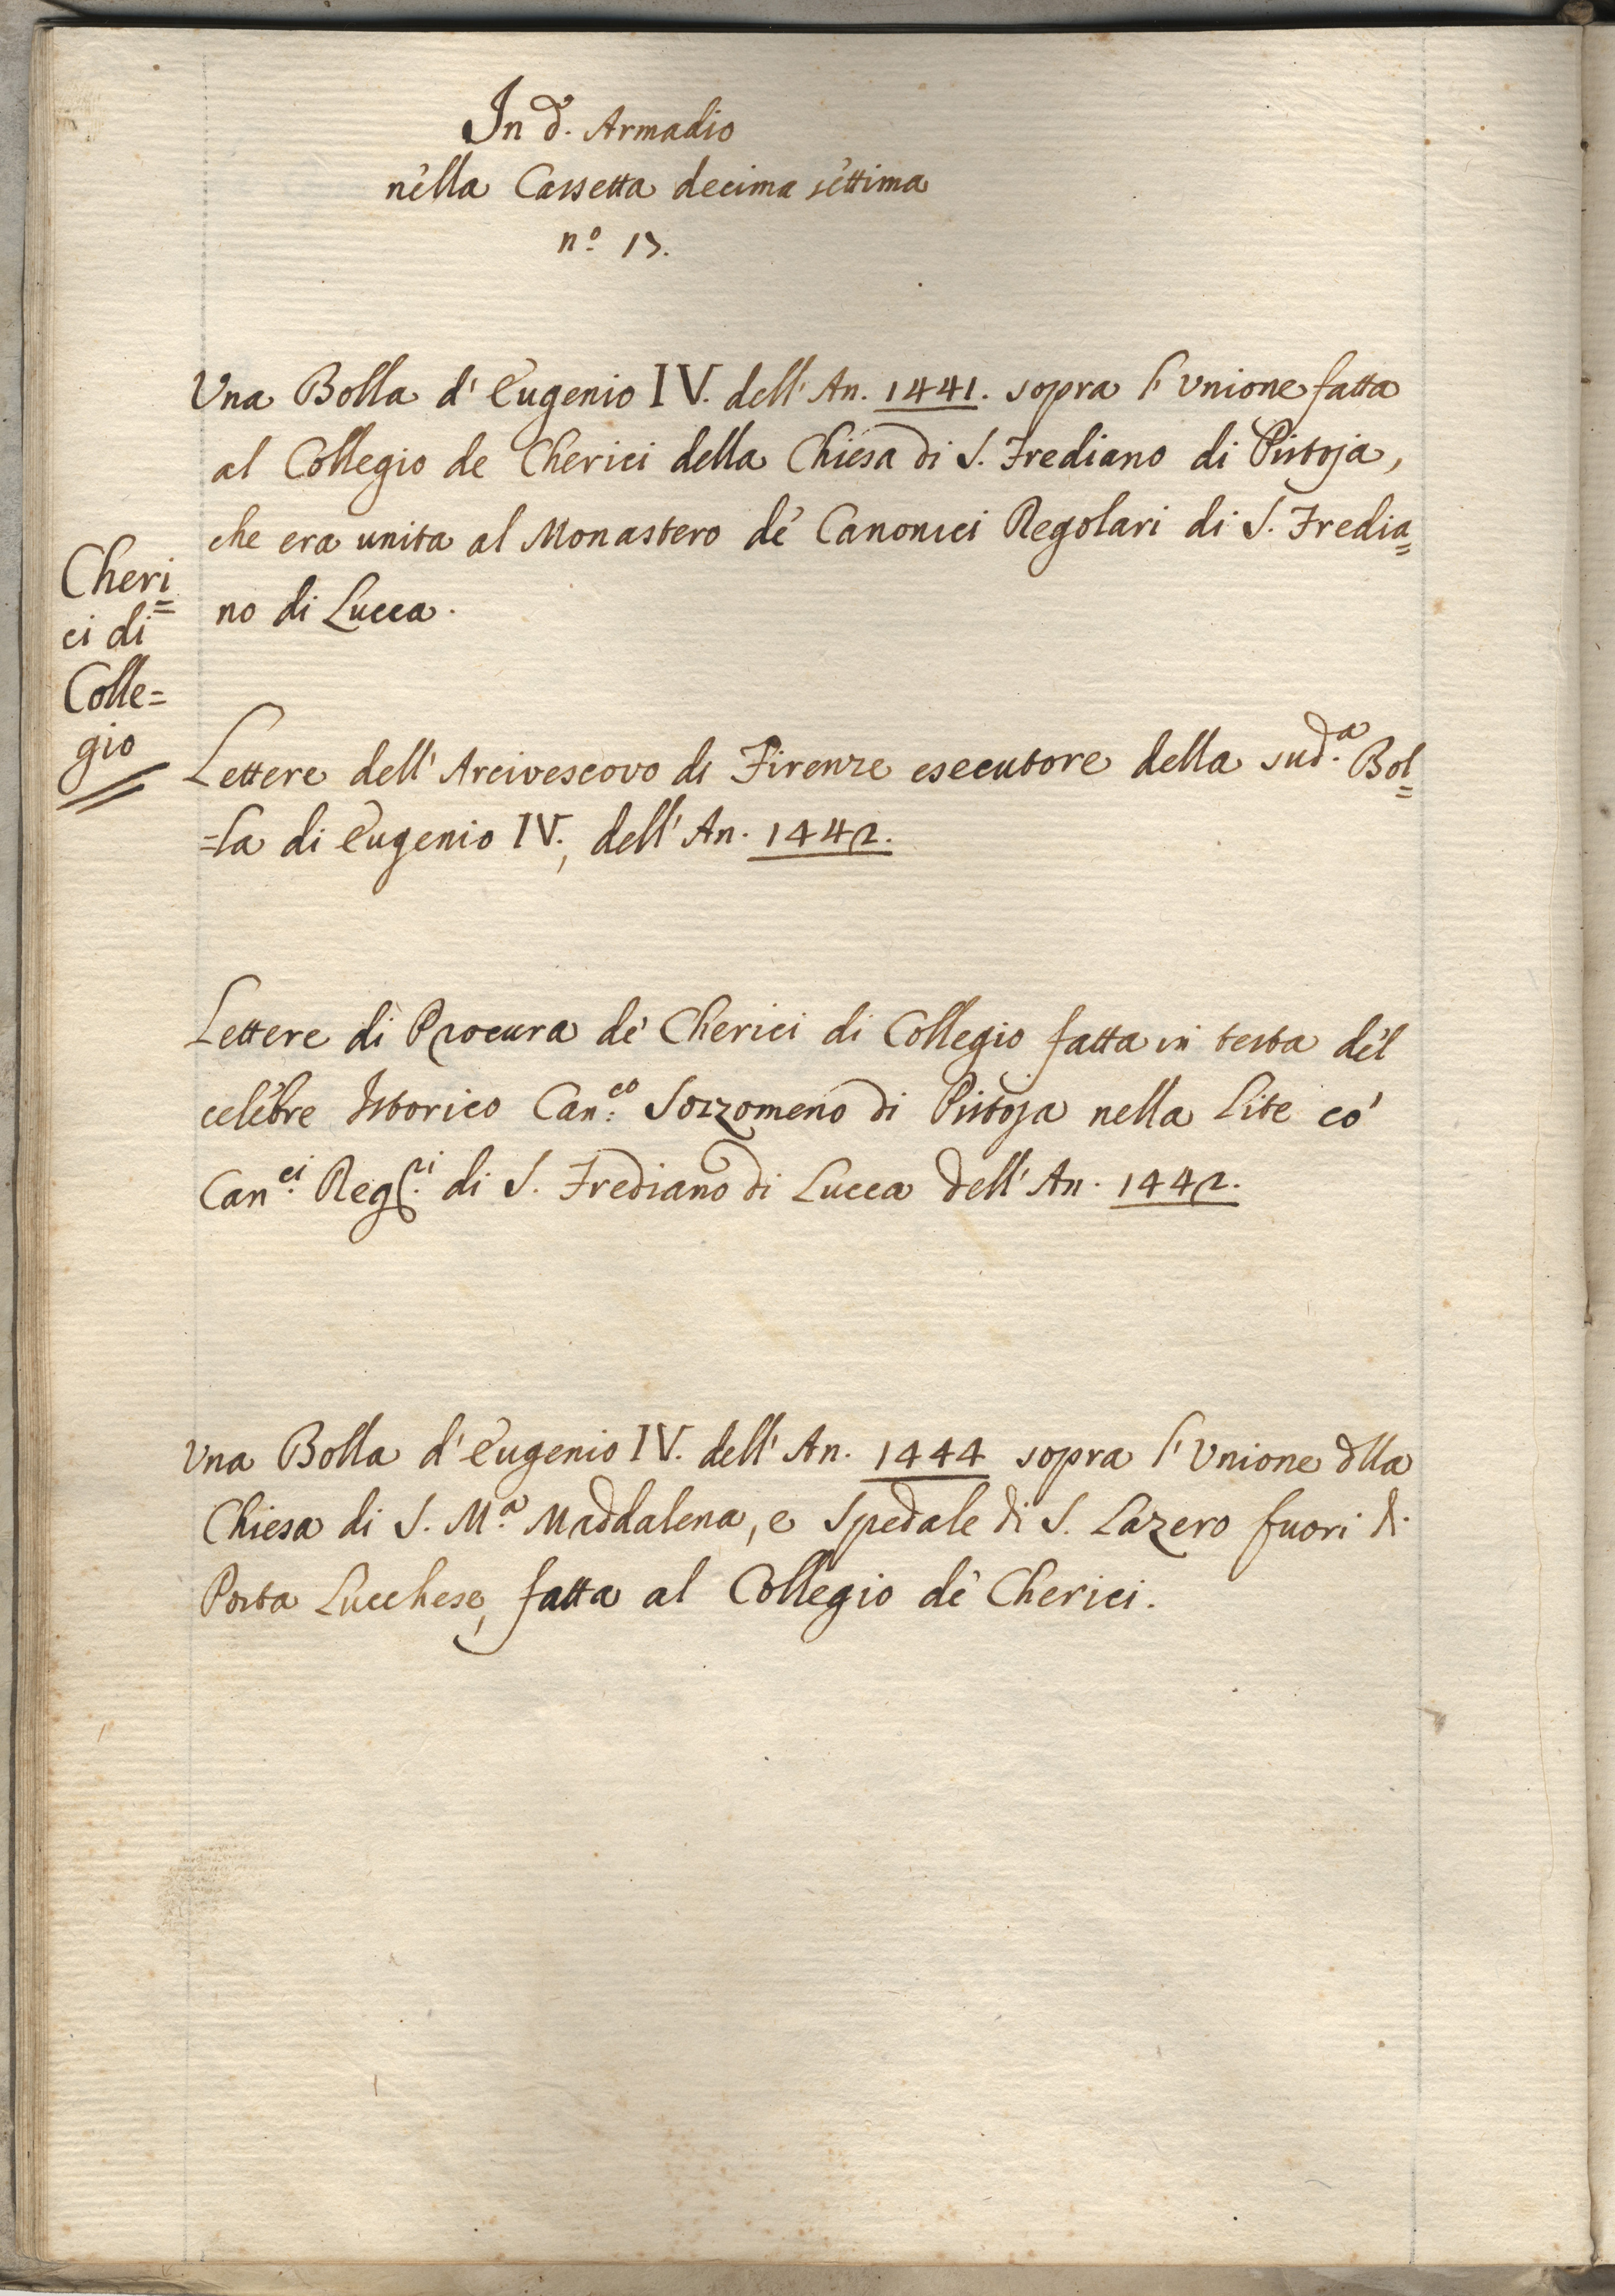 In d.º Armadio
nella Cassetta decima settima
nº 17.
Una Bolla d' Eugenio IV. dell' An. 1441. sopra l' Unione fatta
al Collegio de Cherici della Chiesa di S. Frediano di Pistoja,
che era unita al Monastero de' Canonici Regolari di S. Fredia=
no di Lucca.
Cheri=
ci di
Colle=
gio
Lettere dell' Arcivescovo di Firenze esecutore della sud.ª Bol=
=la di Eugenio IV., dell' An. 1442.
Lettere di Procura de' Cherici di Collegio fatta in testa del
celebre Istorico Can.co Sozzomeno di Pistoja nella Lite co'
Can.ci Reg.ri di S. Frediano di Lucca dell' An. 1442.
Una Bolla d' Eugenio IV. dell' An. 1444 sopra l' Unione dlla
Chiesa di S. M.ª Maddalena, e Spedale di S. Lazero fuori di
Porta Lucchese, fatta al Collegio de' Cherici.